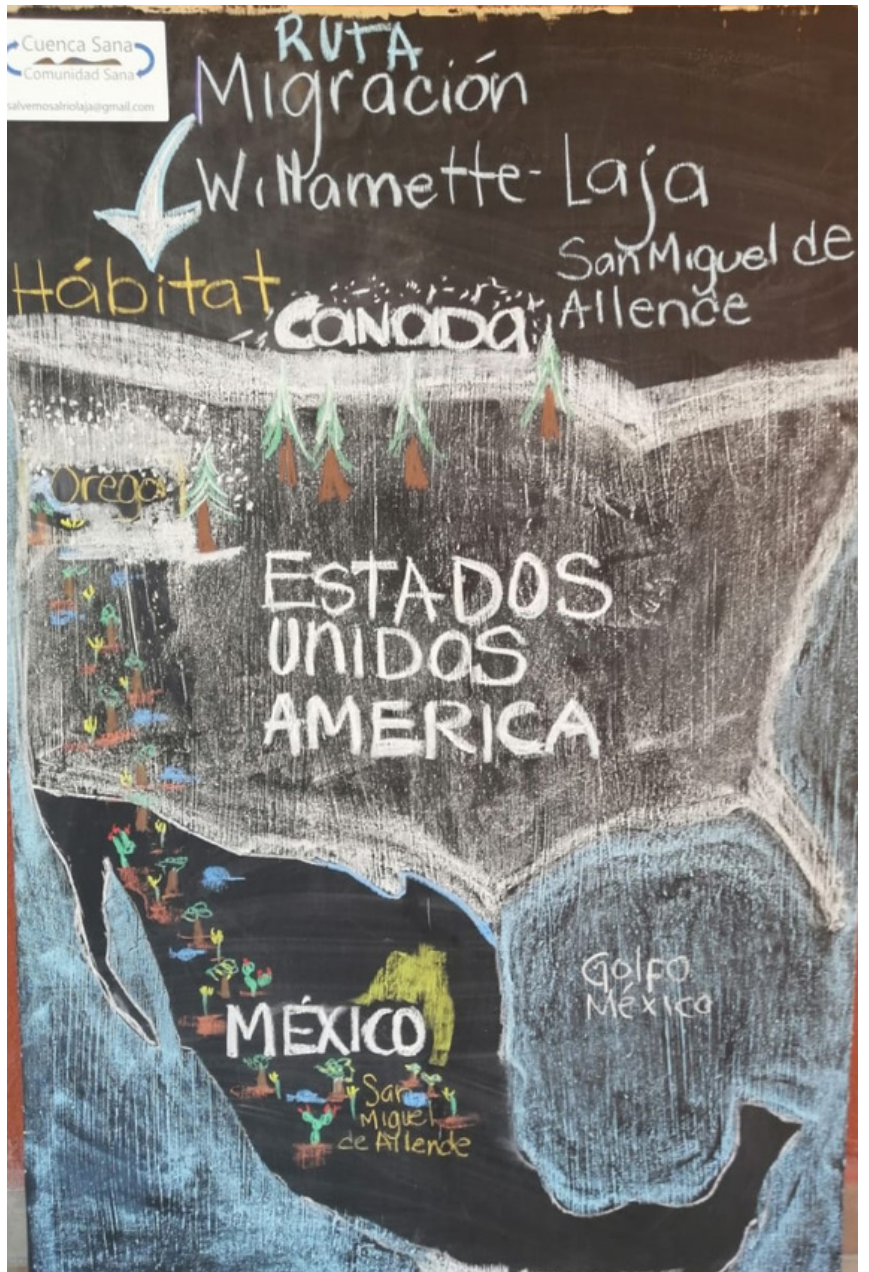 Cuenca Sana
Comunidad Sana
salvemosalriolaja@gmail.com
RUTA
Migración
Willamette-Laja
San Miguel de
Allende
Hábitat
CANADA
Oregon
ESTADOS
UNIDOS
AMERICA
Golfo
México
MÉXICO
San
Miguel
de Allende